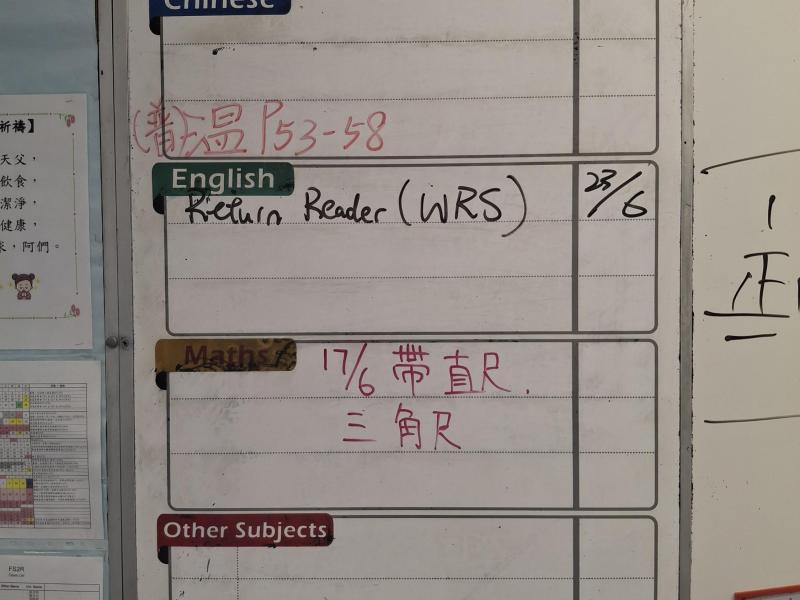 Chinese
(普)溫 P53-58
English
Return Reader (WRS) 23/6
Maths
17/6 帶直尺.
三角尺
Other Subjects
祈禱】
天父，
飲食，
潔淨，
健康，
，阿們。
FS2R
1
正